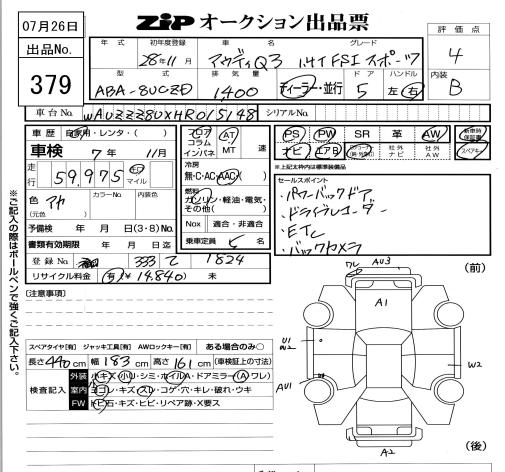 07月26日
出品No.
379
ZIP オークション出品票
評価点
4
内装
B
年式 初年度登録 車名 グレード
28年11月 アウディQ3 1.4TFSIスポーツ
型式 排気量 ドア ハンドル
ABA-8UCZD 1400 ディーラー・並行 5 左 右
車台No. WAUZZZ8UXHR015148 シリアルNo.
車歴 自家用・レンタ・( )
車検 7年 11月
走行 59,975 km マイル
色 アカ (元色) カラーNo. 内装色
予備検 年 月 日(3・8)No.
書類有効期限 年 月 日迄 日
登録No 333 て 1824
リサイクル料金 有(¥14,840) 未
フロア コラム インパネ AT MT 速
冷房 無・C・AC・AAC
燃料 ガソリン・軽油・電気・その他( )
Nox 適合・非適合
乗車定員 5 名
PS PW SR 革 AW 新車時保証書
ナビ エアB 社外ナビ 社外AW
※上記太枠内は標準装備品
セールスポイント
・パワーバックドア
・ドライブレコーダー
・ETC
・バックカメラ
※ご記入の際はボールペンで強くご記入下さい。
[注意事項]
スペアタイヤ[有] ジャッキ工具[有] AWロックキー[有] ある場合のみ○
長さ440cm 幅183cm 高さ161cm (車検証上の寸法)
検査記入
外装 小キズ・小凹・シミ・ホイルA・ドアミラー(A・ワレ)
室内 ヨゴレ・キズ・スレ・コゲ・穴・キレ・破れ・ウキ
FW トビ石・キズ・ヒビ・リペア跡・X要ス
(前)
ワレ AU3
A1
U1
W2
W2
AU1
A2
(後)